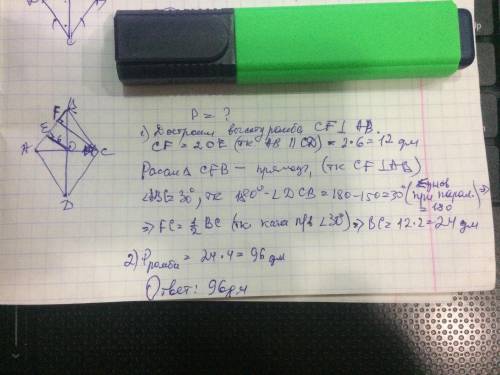 P = ?
1) Достроим высоту ромба CF⊥AB.
CF = 2OE (тк AB || CD) = 2·6 = 12 дм
Рассм Δ CFB – прямоуг, (тк CF⊥AB)
=30°, тк 180° - ∠DCB = 180-150=30° (
при парал. = 180) ⇒
⇒ FC = ½ BC (тк ∠30°) ⇒ BC = 12·2 = 24 дм
2) Pромба = 24·4 = 96 дм
Ответ: 96 дм
F
B
E
6
A
O
C
D